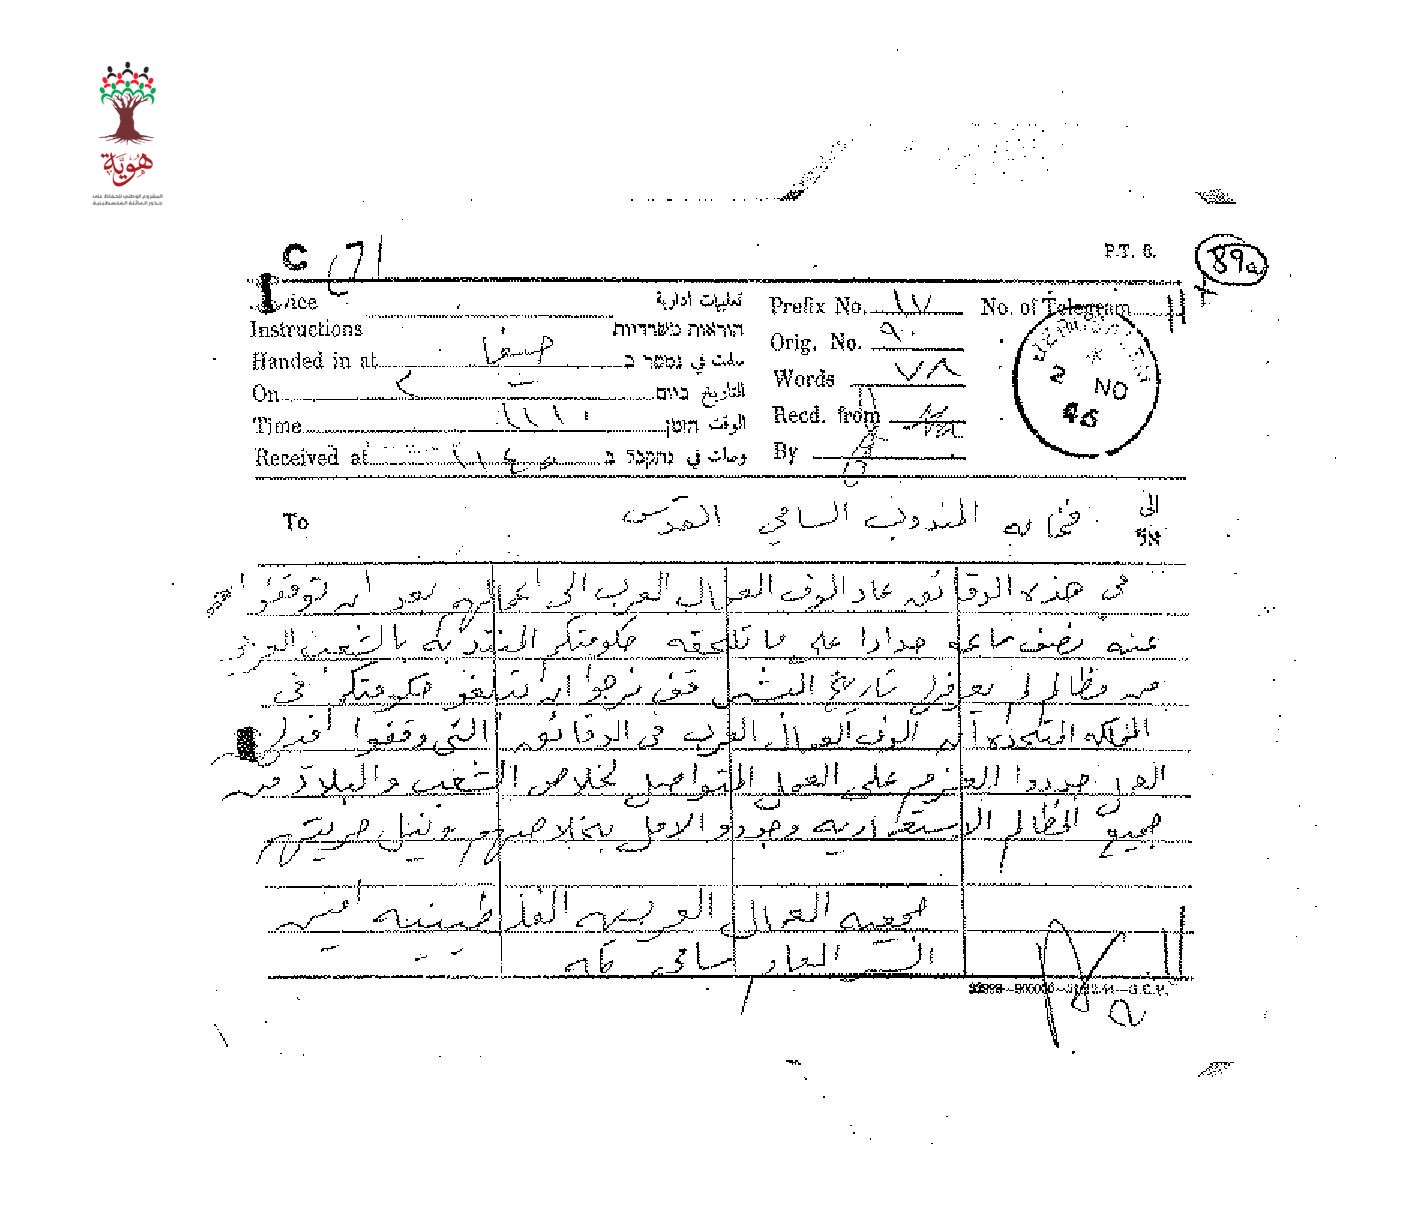 هوية
المشروع الوطني للحفاظ على
جذور العائلة الفلسطينية
C
P.T. 6.
89a
تعليمات ادارية
Prefix No. ١٧ No. of Telegram
Instructions הוראות משרדיות
Orig. No. ٩٠
Handed in at حيفا سلمت في נמסר ב
Words ٧٨
On ٢ التاريخ ביום
Recd. from
Time ١١١٠ الوقت הזמן
Received at وصلت في נתקבל ב
By
2 NO 46
To فخامة المندوب السامي القدس الى אל
في هذه الدقائق عاد الوف العمال العرب الى اعمالهم بعد ان توقفوا
عنه نصف ساعة حدادا على ما تلحقه حكومتكم المنتدبة بالشعب العربي
من مظالم لم يعرفها تاريخ البشر نرجوا ان تبلغوا حكومتكم في
المملكة المتحدة ان الوف العمال العرب في الدقائق التي وقفوا
العمل جددوا العزم على العمل المتواصل لخلاص الشعب والبلاد من
جميع المظالم الاستعمارية وجددوا الامل بخلاصهم ونيل حريتهم
جمعية العمال العربية الفلسطينية امين
السر العام سامي طه